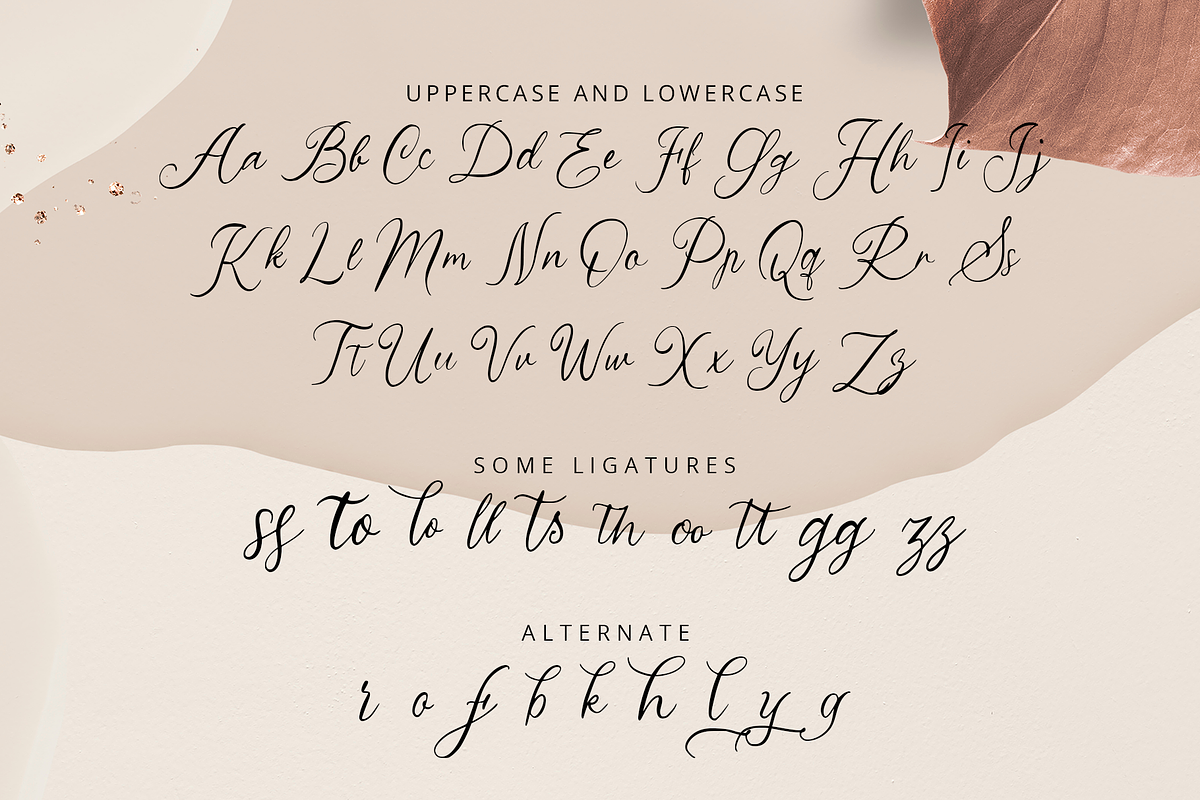 UPPERCASE AND LOWERCASE
Aa Bb Cc Dd Ee Ff Gg Hh Ii Jj
Kk Ll Mm Nn Oo Pp Qq Rr Ss
Tt Uu Vv Ww Xx Yy Zz
SOME LIGATURES
ss to lo ll ts th oo tt gg zz
ALTERNATE
r o f b k h l y g